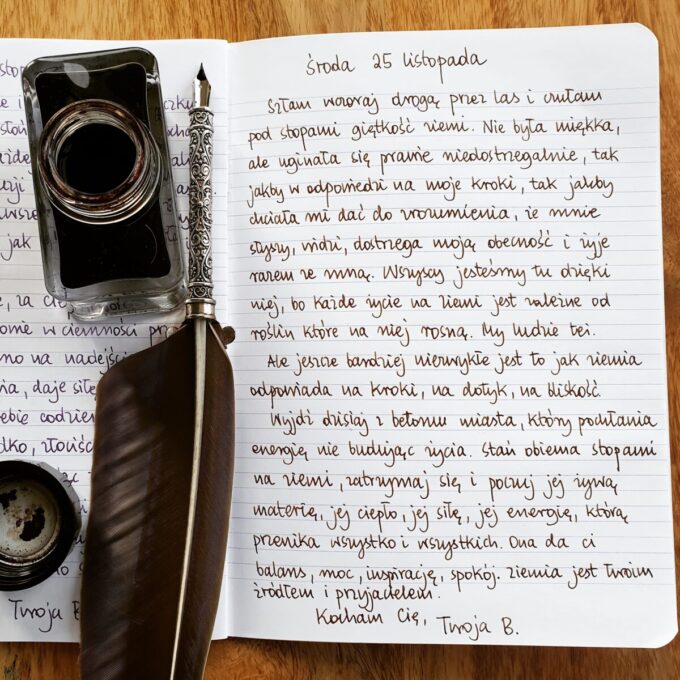 jak
za
w ciemności
na
daje siłę
Twoja
Środa 25 listopada
Szłam wczoraj drogą przez las i czułam
pod stopami giętkość ziemi. Nie była miękka,
ale uginała się prawie niedostrzegalnie, tak
jakby w odpowiedzi na moje kroki, tak jakby
chciała mi dać do zrozumienia, że mnie
słyszy, widzi, dostrzega moją obecność i żyje
razem ze mną. Wszyscy jesteśmy tu dzięki
niej, bo każde życie na ziemi jest zależne od
roślin które na niej rosną. My ludzie też.
Ale jeszcze bardziej niezwykłe jest to jak ziemia
odpowiada na kroki, na dotyk, na bliskość.
Wyjdź dzisiaj z betonu miasta, który pochłania
energię nie budując życia. Stań obiema stopami
na ziemi, zatrzymaj się i poczuj jej żywą
materię, jej ciepło, jej siłę, jej energię, którą
przenika wszystko i wszystkich. Ona da ci
balans, moc, inspirację, spokój. Ziemia jest Twoim
źródłem i przyjacielem.
Kocham Cię,
Twoja B.